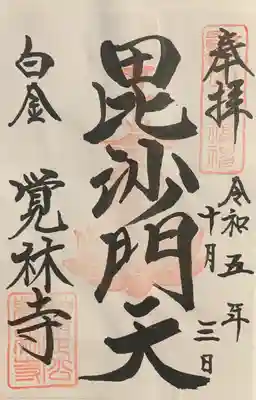 奉拝
令和五年
十月三日
毘沙門天
白金
覚林寺